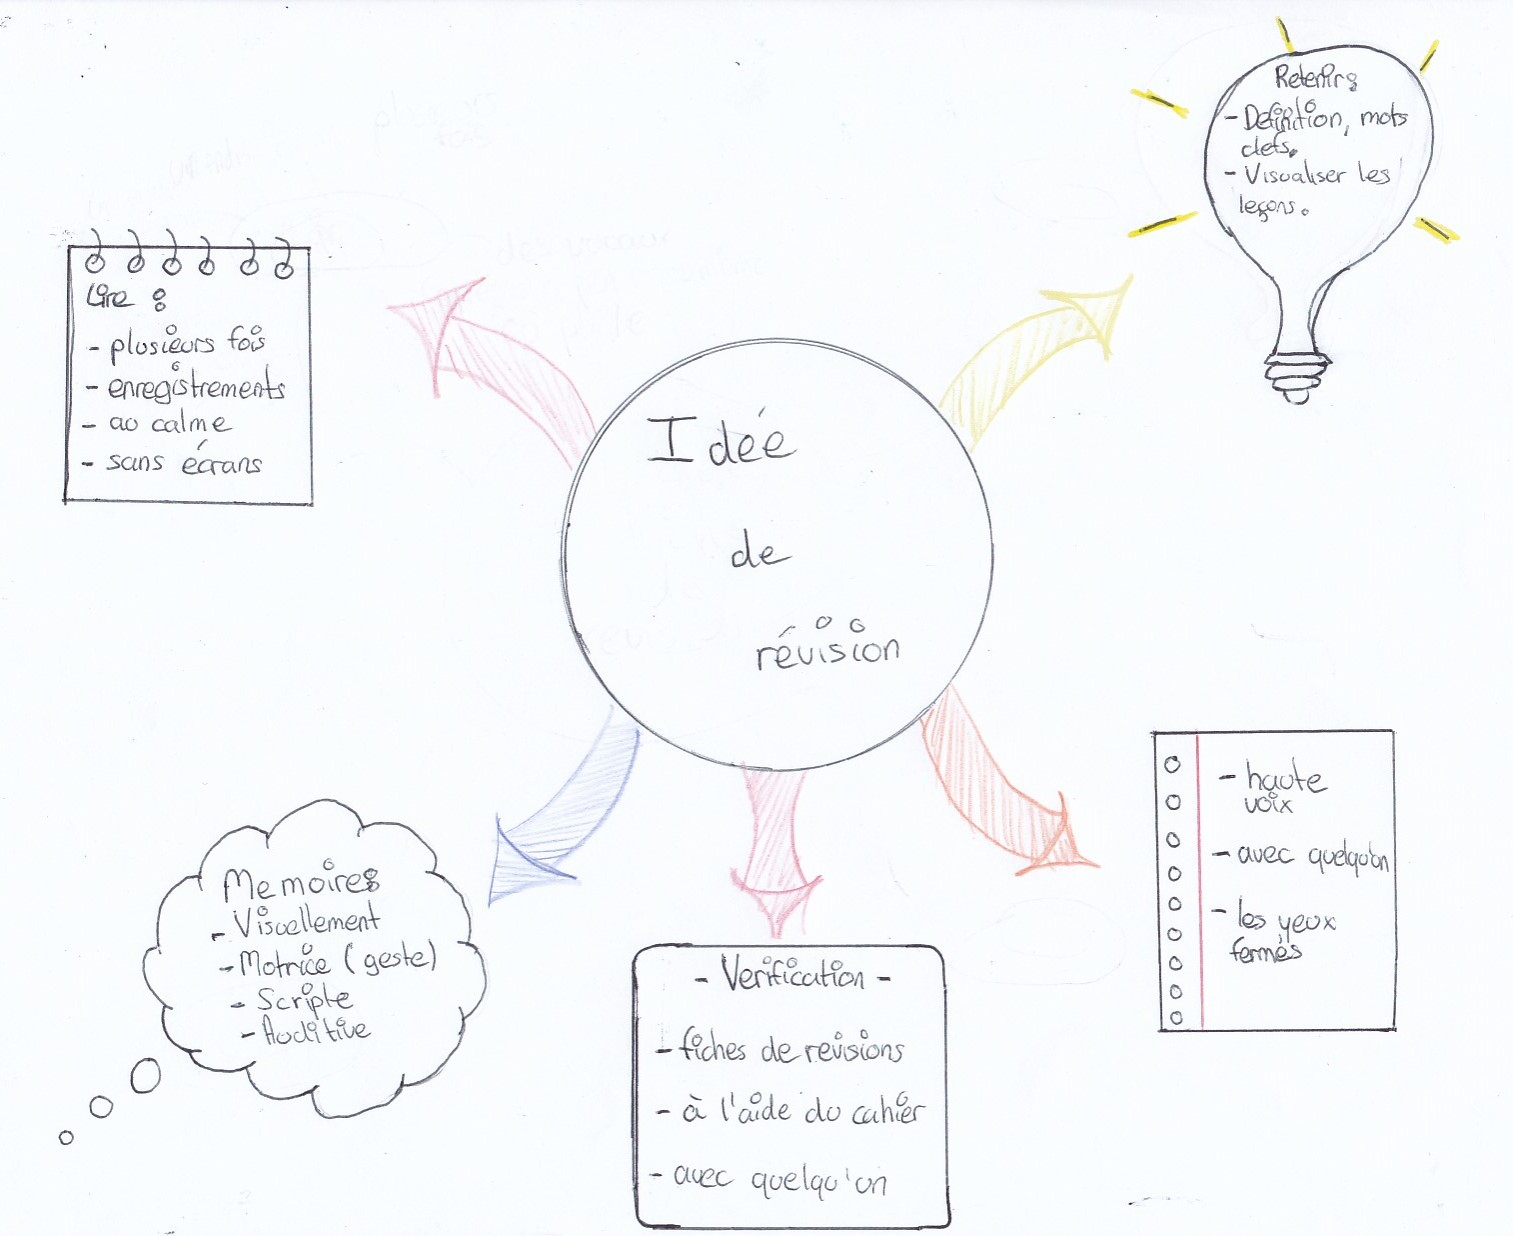 Idée
de
révision
Lire :
- plusieurs fois
- enregistrements
- au calme
- sans écrans
Retenir :
- Definition, mots
clefs.
- Visualiser les
leçons.
- haute
voix
- avec quelqu'un
- les yeux
fermés
- Verification -
- fiches de revisions
- à l'aide du cahier
- avec quelqu'un
Memoire :
- Visuellement
- Motrice (geste)
- Scripte
- Auditive